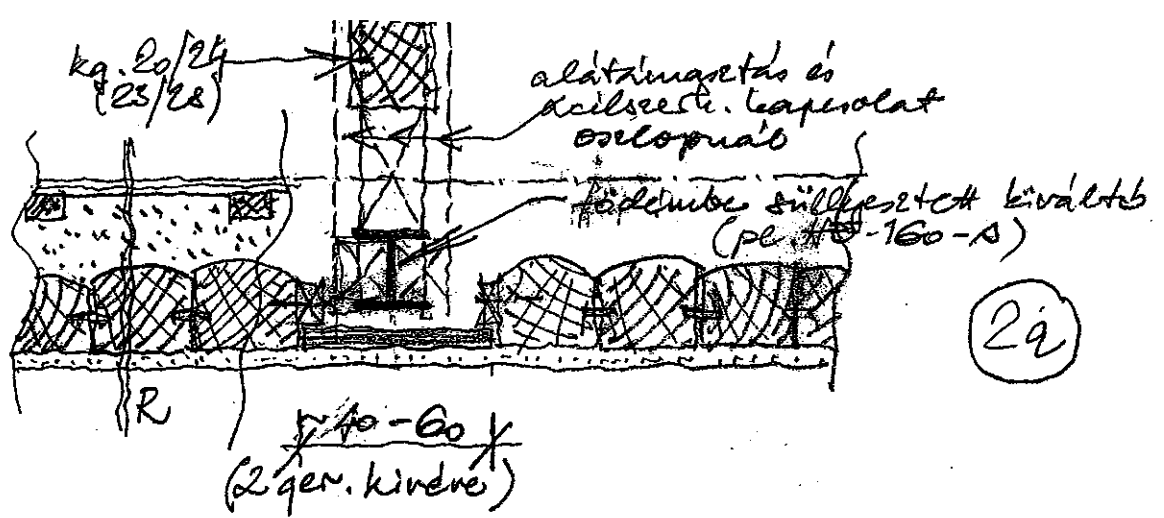 kg. 20/24
(23/28)
alátámasztás és
acélszerk. kapcsolat
oszlopnál
födémbe süllyesztett kiváltó
(pl. HE-160-A)
2q
R
~ 40-60
(2 ger. kivéve)